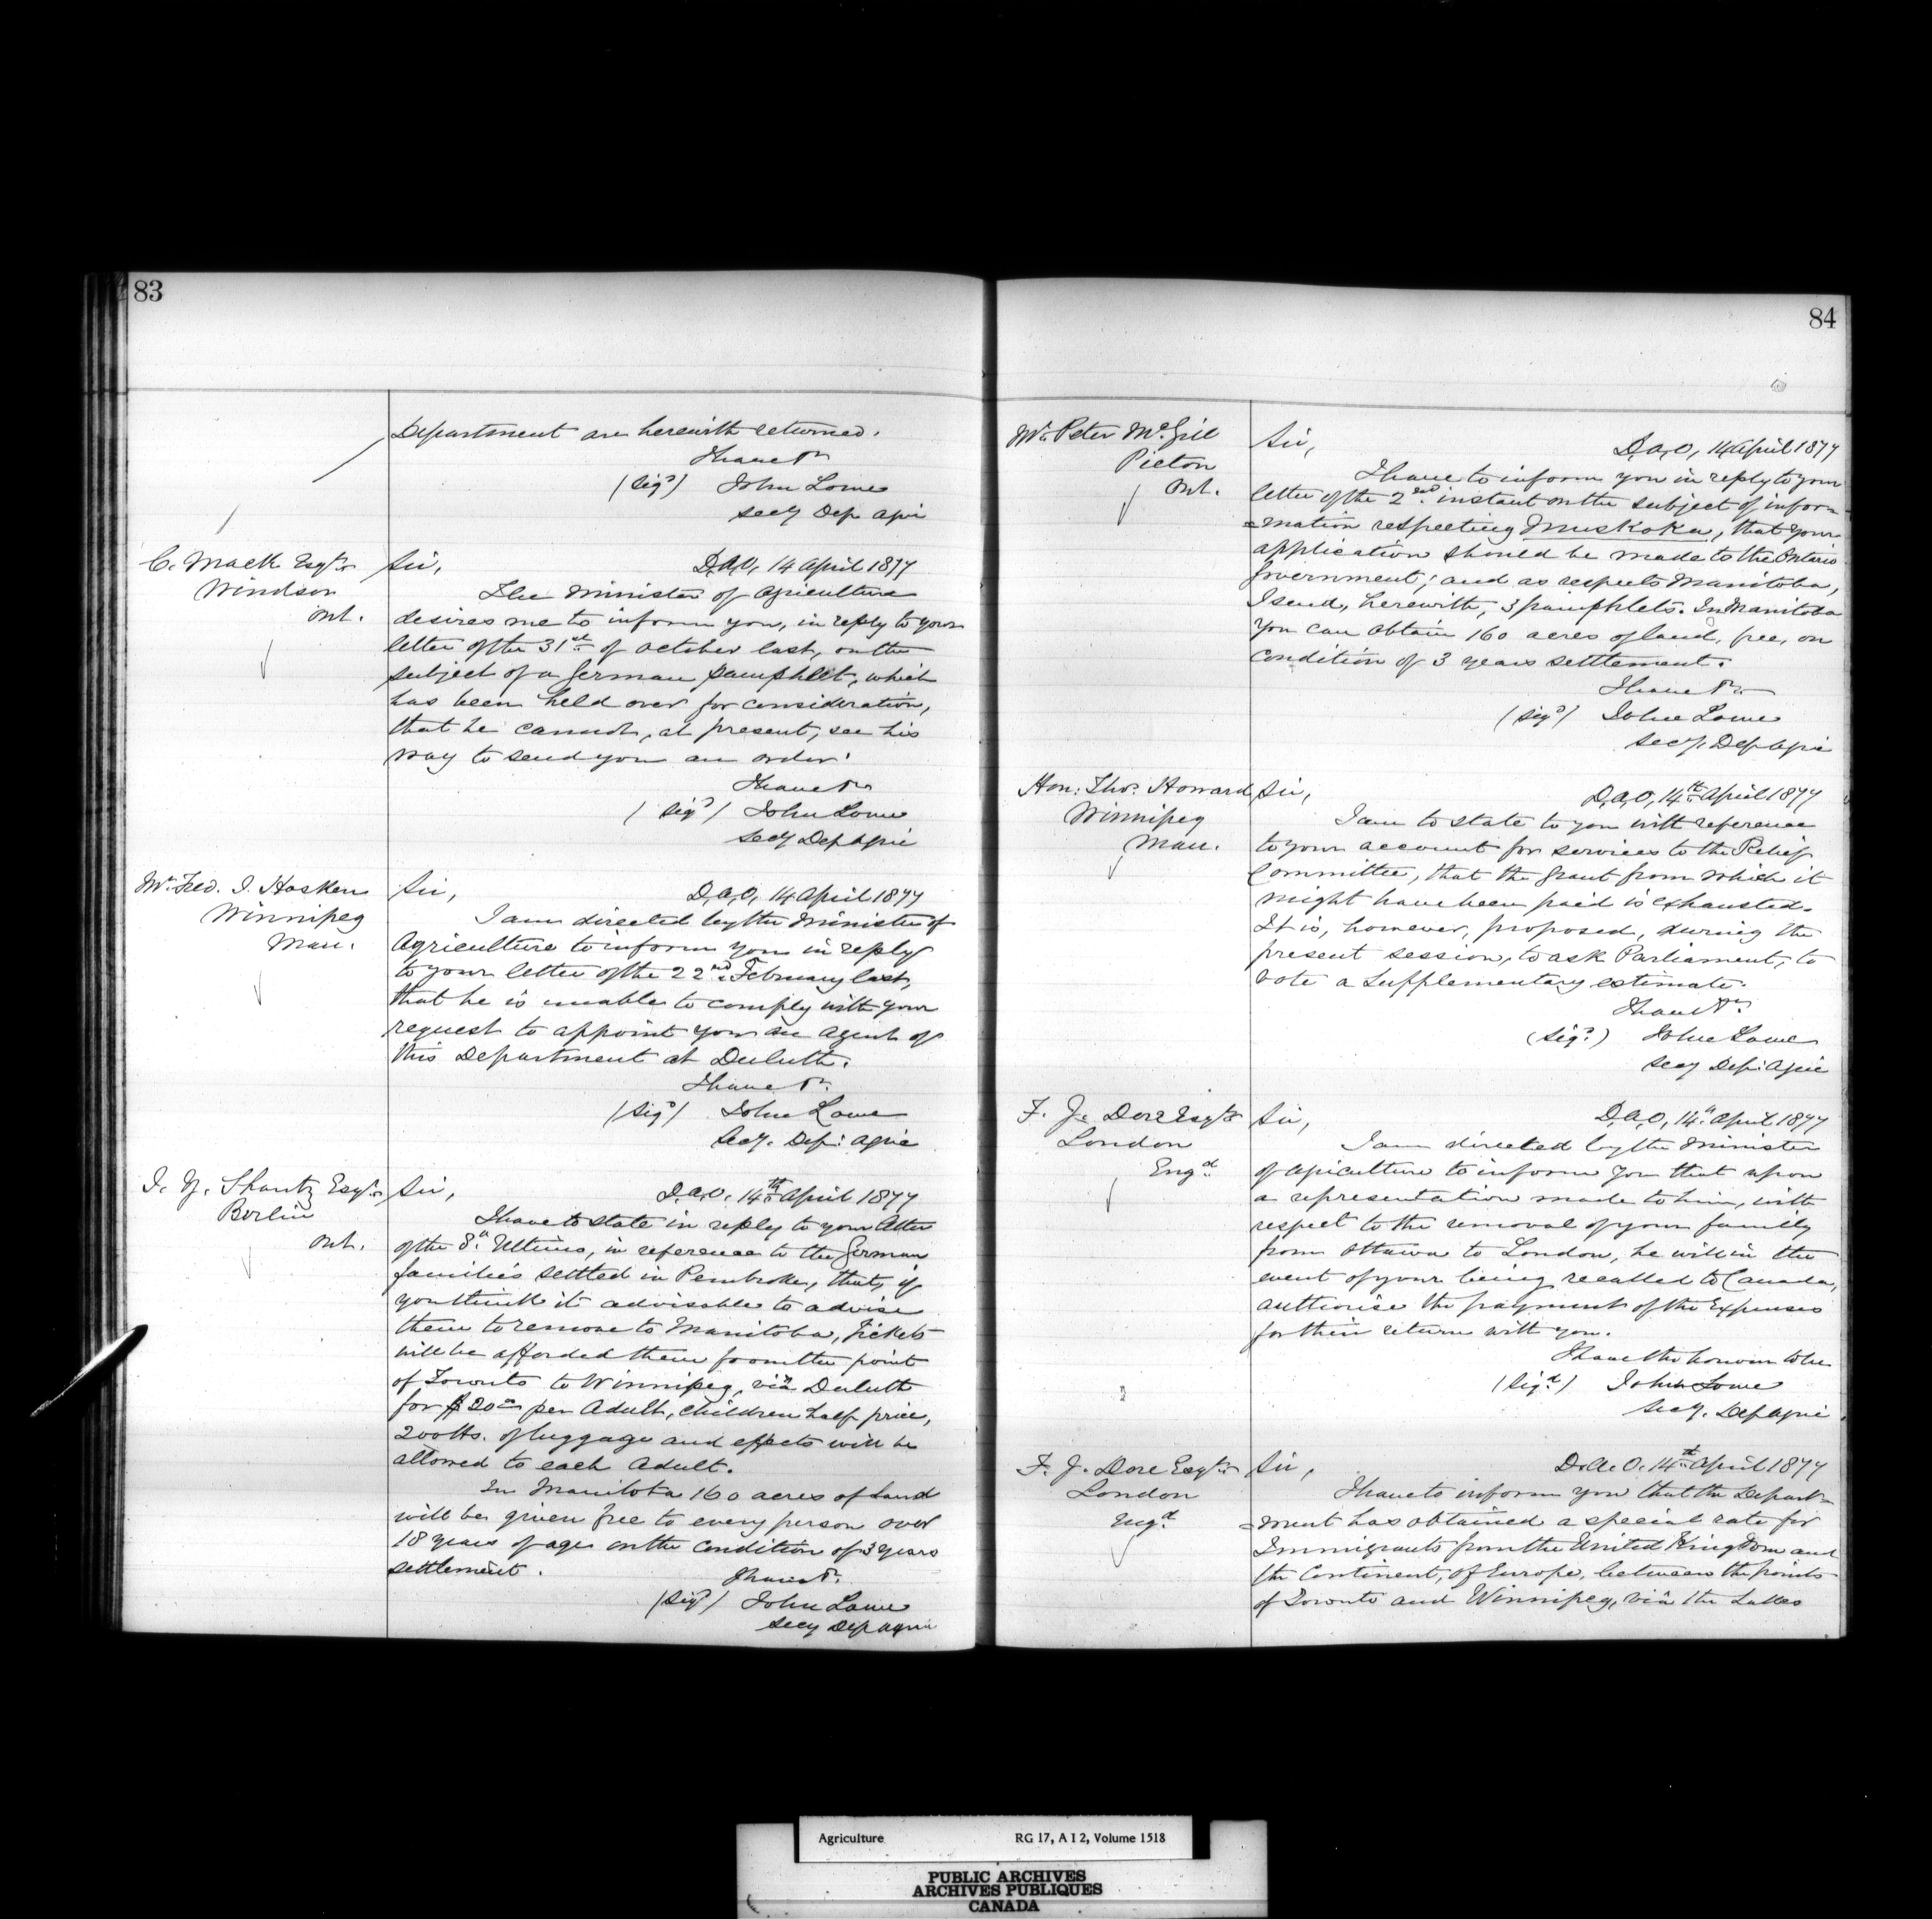 83
Department are herewith returned.
I have &c
(Sigd) John Lowe
Secy Dep Agri
C. Mack Esqre
Windsor
Ont.
Sir,
D.A.O, 14 April 1877
The Minister of Agriculture
desires me to inform you, in reply to your
letter of the 31st of October last, on the
subject of a German pamphlet, which
has been held over for consideration,
that he cannot, at present, see his
way to send you an order.
I have &c
(Sigd) John Lowe
Secy Dep Agric
Mr Fred. I. Hosken
Winnipeg
Man.
Sir,
D.A.O, 14 April 1877
I am directed by the Minister of
Agriculture to inform you in reply
to your letter of the 22nd February last,
that he is unable to comply with your
request to appoint you an agent of
this Department at Duluth.
I have &c.
(Sigd) John Lowe
Secy. Dep: Agric
J. Y. Shantz Esqre
Berlin
Ont.
Sir,
D.A.O. 14th April 1877
I have to state in reply to your letter
of the 8th Ultimo, in reference to the German
families settled in Pembroke, that, if
you think it advisable to advise
them to remove to Manitoba, tickets
will be afforded them from the point
of Toronto to Winnipeg, via Duluth
for $20 00 per Adult, children half price,
200 lbs. of luggage and effects will be
allowed to each Adult.
In Manitoba 160 acres of land
will be given free to every person over
18 years of age on the condition of 3 years
settlement.
I have &c.
(Sigd) John Lowe
Secy Dep Agric
84
Mr Peter McGill
Picton
Ont.
Sir,
D.A.O, 14 April 1877
I have to inform you in reply to your
letter of the 2nd instant on the subject of infor-
=mation respecting Muskoka, that your
application should be made to the Ontario
Government; and as respects Manitoba,
I send, herewith, 3 pamphlets. In Manitoba
you can obtain 160 acres of land, free, on
condition of 3 years settlement.
I have &c
(Sigd) John Lowe
Secy. Dep Agric
Hon: Thos. Howard
Winnipeg
Man.
Sir,
D.A.O, 14th April 1877
I am to state to you with reference
to your account for services to the Relief
Committee, that the grant from which it
might have been paid is exhausted.
It is, however, proposed, during the
present session, to ask Parliament, to
vote a Supplementary estimate.
I have &c
(Sigd) John Lowe
Secy Dep: Agric
F. J. Dore Esqre
London
Engd
Sir,
D.A.O, 14th April 1877
I am directed by the Minister
of Agriculture to inform you that upon
a representation made to him, with
respect to the removal of your family
from Ottawa to London, he will in the
event of your being recalled to Canada,
authorise the payment of the Expenses
for their return with you.
I have the honour to be
(Sigd) John Lowe
Secy. Dep Agric
F. J. Dore Esqre
London
Engd
Sir,
D.A.O. 14th April 1877
I have to inform you that the Depart-
=ment has obtained a special rate for
Immigrants from the United Kingdom and
the Continent, of Europe, between the points
of Toronto and Winnipeg, via the Lakes
Agriculture RG 17, A I 2, Volume 1518
PUBLIC ARCHIVES
ARCHIVES PUBLIQUES
CANADA